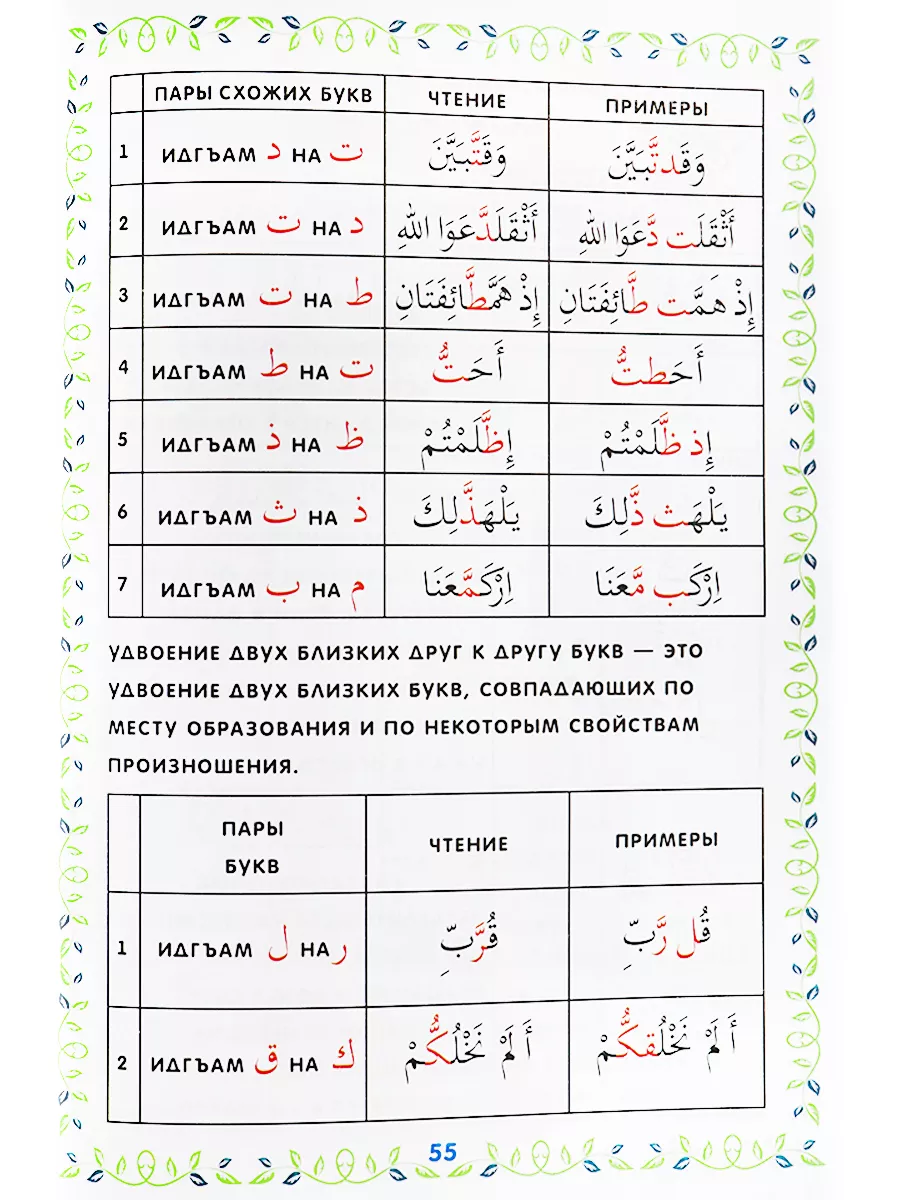 ПАРЫ СХОЖИХ БУКВ ЧТЕНИЕ ПРИМЕРЫ
1 ИДГЪАМ د НА ت وَقَتَّبَيَّنَ وَقَدتَّبَيَّنَ
2 ИДГЪАМ ت НА د أَثْقَلَدَّعَوَا اللهَ أَثْقَلَت دَّعَوَا اللهَ
3 ИДГЪАМ ت НА ط إِذْ هَمَّطَّائِفَتَانِ إِذْ هَمَّت طَّائِفَتَانِ
4 ИДГЪАМ ط НА ت أَحَتُّ أَحَطتُّ
5 ИДГЪАМ ذ НА ظ إِظَّلَمْتُمْ إِذ ظَّلَمْتُمْ
6 ИДГЪАМ ث НА ذ يَلْهَذَّلِكَ يَلْهَث ذَّلِكَ
7 ИДГЪАМ ب НА م اِرْكَمَّعَنَا اِرْكَب مَّعَنَا
УДВОЕНИЕ ДВУХ БЛИЗКИХ ДРУГ К ДРУГУ БУКВ — ЭТО
УДВОЕНИЕ ДВУХ БЛИЗКИХ БУКВ, СОВПАДАЮЩИХ ПО
МЕСТУ ОБРАЗОВАНИЯ И ПО НЕКОТОРЫМ СВОЙСТВАМ
ПРОИЗНОШЕНИЯ.
ПАРЫ
БУКВ
ЧТЕНИЕ ПРИМЕРЫ
1 ИДГЪАМ ل НА ر قُرَّبِّ قُل رَّبِّ
2 ИДГЪАМ ق НА ك أَلَمْ نَخْلُكُّمْ أَلَمْ نَخْلُقكُّمْ
55